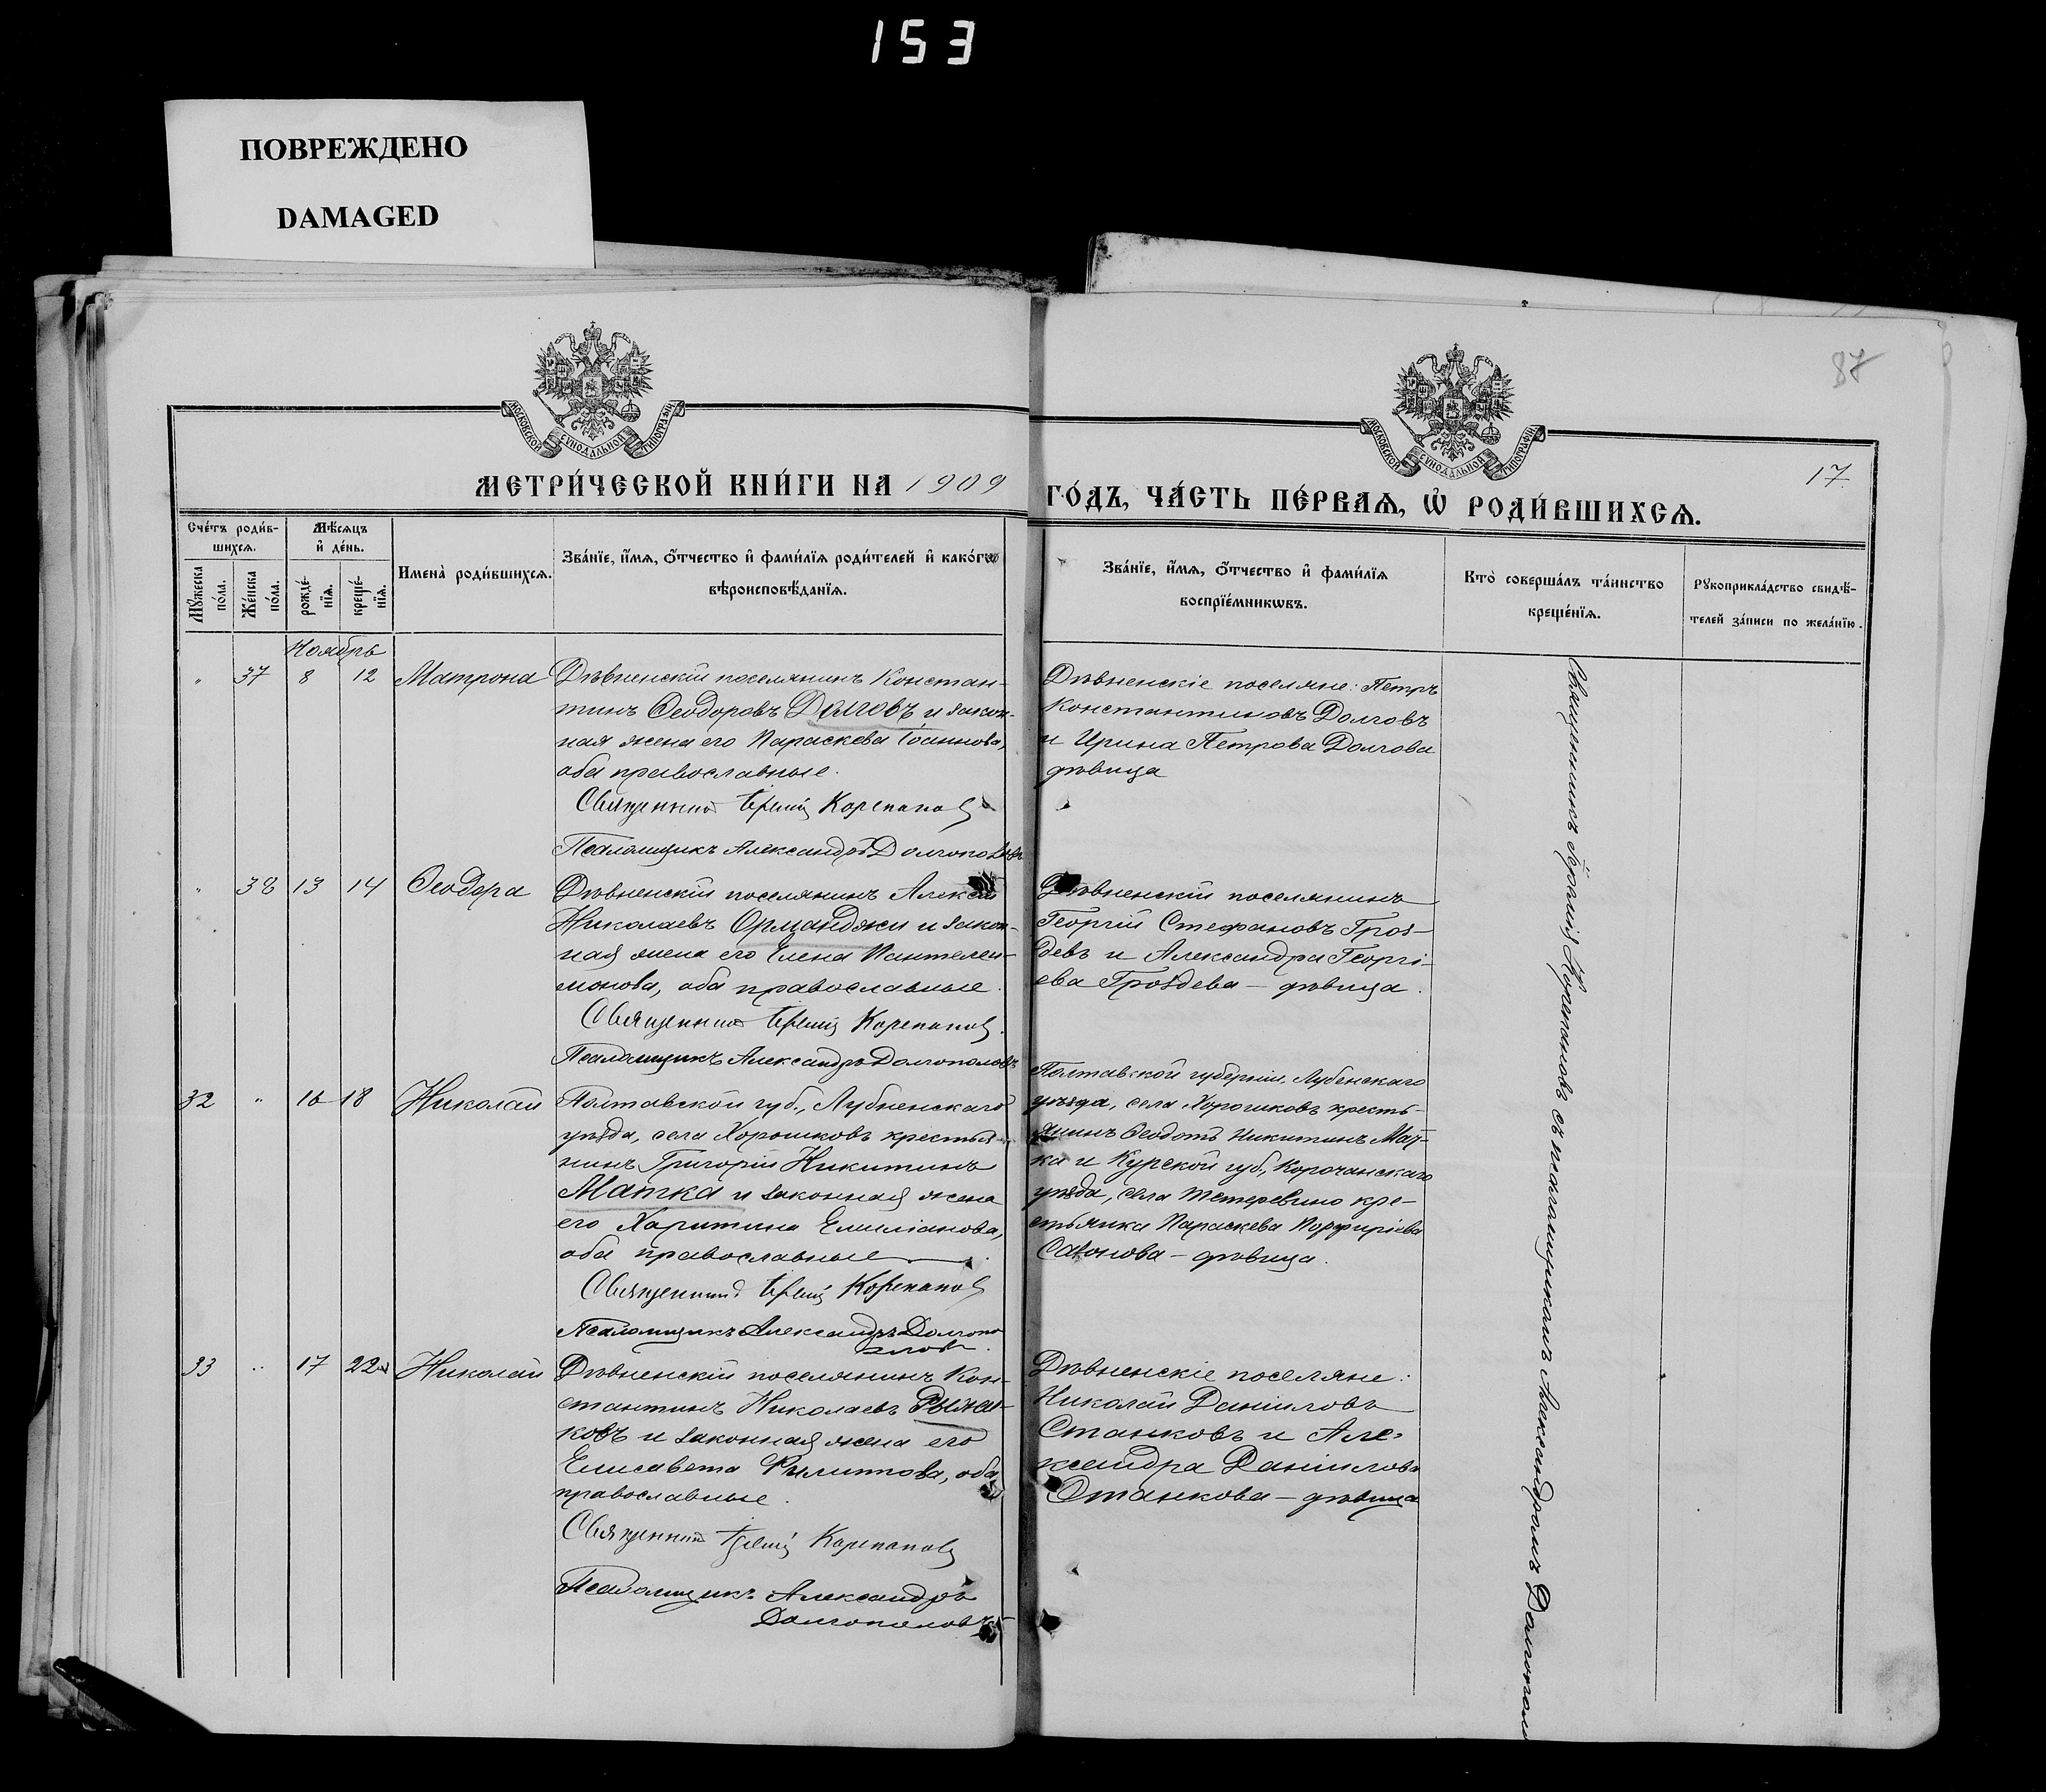 153
ПОВРЕЖДЕНО
DAMAGED
87
МОСКОВСКОЙ СѴНОДАЛЬНОЙ ТИПОГРАФІИ
МОСКОВСКОЙ СѴНОДАЛЬНОЙ ТИПОГРАФІИ
17.
МЕТРИ́ЧЕСКОЙ КНИ́ГИ НА 1909 ГО́ДЪ, ЧА́СТЬ ПЕ́РВАѦ, Ѿ РОДИ́ВШИХСѦ.
Сче́тъ роди́в-
шихсѧ.
Мꙋ́жеска по́ла.
Же́нска по́ла.
Мѣ́сѧцъ
и҆ де́нь.
рожде́-
нїѧ.
креще́-
нїѧ.
И҆мена̀ роди́вшихсѧ.
Зва́нїе, и҆́мѧ, ѻ҆́тчество и҆ фами́лїѧ роди́телей и҆ како́гѡ
вѣроисповѣ́данїѧ.
Зва́нїе, и҆́мѧ, ѻ҆́тчество и҆ фами́лїѧ
воспрїе́мникѡвъ.
Кто̀ соверша́лъ та́инство
креще́нїѧ.
Рꙋкоприкла́дство свидѣ́-
телей за́писи по жела́нїю.
Ноябрь
" 37 8 12 Матрона
Дѣвненскій поселянинъ Констан-
тинъ Ѳеодоровъ Долговъ и закон-
ная жена его Параскева Іоаннова,
оба православные.
Священникъ Іеремія Корепановъ
Псаломщикъ Александръ Долгополовъ
Дѣвненскіе поселяне: Петръ
Константиновъ Долговъ
и Ирина Петрова Долгова
дѣвица
" 38 13 14 Ѳеодора
Дѣвненскій поселянинъ Алексѣй
Николаевъ Орманджи и закон-
ная жена его Елена Пантелеи-
монова, оба православные.
Священникъ Іеремія Корепановъ
Псаломщикъ Александръ Долгополовъ
Дѣвненскій поселянинъ
Георгій Стефановъ Гроз-
девъ и Александра Георгі-
ева Гроздева - дѣвица.
32 " 16 18 Николай
Полтавской губ., Лубненскаго
уѣзда, села Хорошковъ крестья-
нинъ Григорій Никитинъ
Матка и законная жена
его Харитина Емиліанова,
оба православные
Священникъ Іеремія Корепановъ
Псаломщикъ Александръ Долгопо
ловъ.
Полтавской губерніи, Лубенскаго
уѣзда, села Хорошковъ кресть-
янинъ Ѳеодотъ Никитинъ Мат-
ка и Курской губ., Корочанскаго
уѣзда, села Тетеревино кре-
стьянка Параскева Порфиріева
Сазонова - дѣвица.
33 " 17 22 Николай
Дѣвненскій поселянинъ Кон-
стантинъ Николаевъ Рыжа-
ковъ и законная жена его
Елисавета Филиппова, оба
православные.
Священникъ Іеремія Корепановъ
Псаломщикъ Александръ
Долгополовъ
Дѣвненскіе поселяне:
Николай Даніиловъ
Станковъ и Але-
ксандра Даніилова
Станкова - дѣвица
Священникъ Іеремія Корепановъ съ псаломщикомъ Александромъ Долгополо